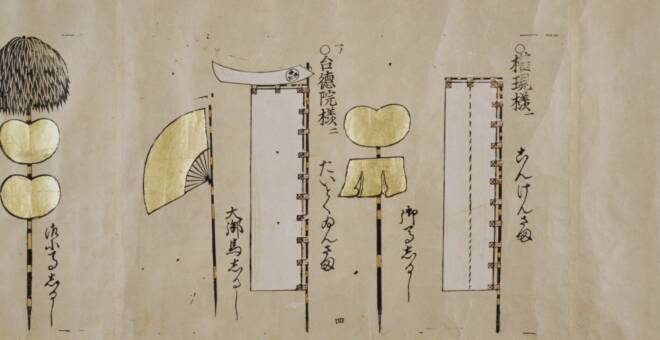 ○権現様 一
ごんげんさま
御馬志るし
○台徳院様 二
たいとくゐんさま
大御馬志るし
御小馬志るし
四